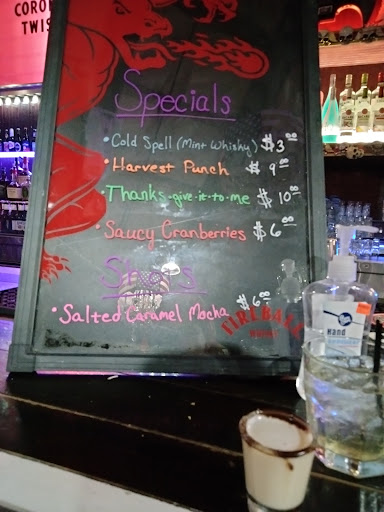 CORO
TWIS
Specials
• Cold Spell (Mint Whisky) $3.00
• Harvest Punch $9.00
Thanks-give-it-to-me $10.00
• Saucy Cranberries $6.00
• Salted Caramel Mocha $6.00
FIREBALL
Hand